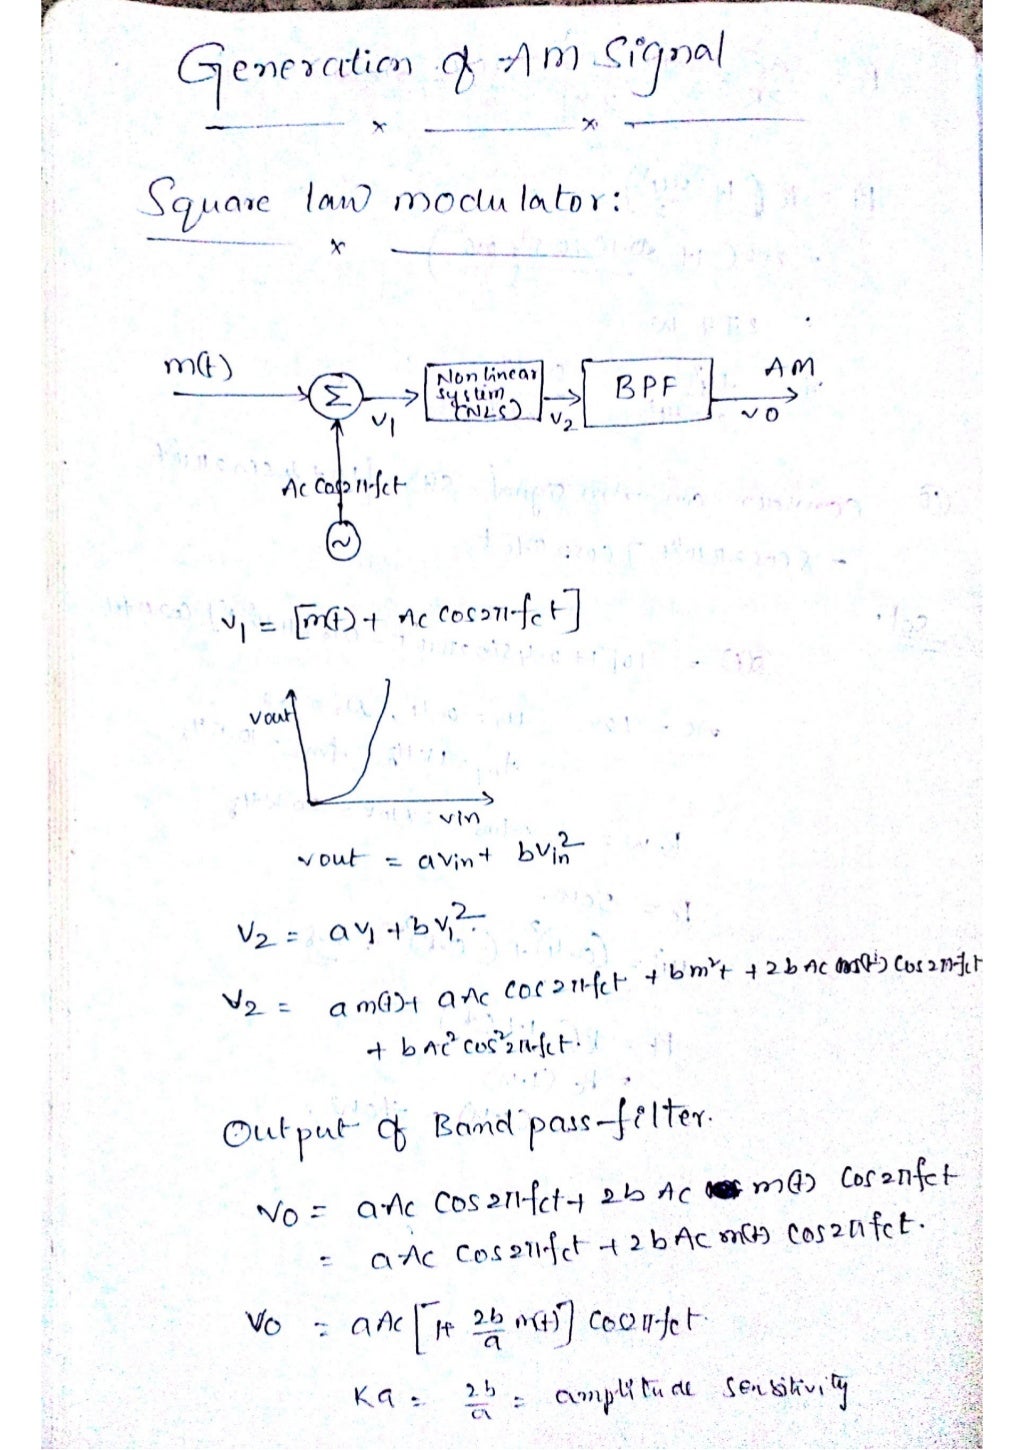 Generation of AM Signal
Square law modulator:
m(t)
Σ
V1
Non linear
system
(NLS)
V2
BPF
AM
vo
Ac Cos2πfct
~
V1 = [m(t) + Ac cos2πfct]
vout
vin
vout = avin + bvin²
V2 = av1 + bv1².
V2 = am(t) + aAc cos2πfct + bm²t + 2bAc m(t) cos2πfct
+ bAc² cos²2πfct.
Output of Band pass-filter.
Vo = aAc cos2πfct + 2b Ac m(t) Cos2πfct
= aAc Cos2πfct + 2bAc m(t) cos2πfct.
Vo = aAc [1+ 2b/a m(t)] cos2πfct.
Ka = 2b/a = amplitude sensitivity